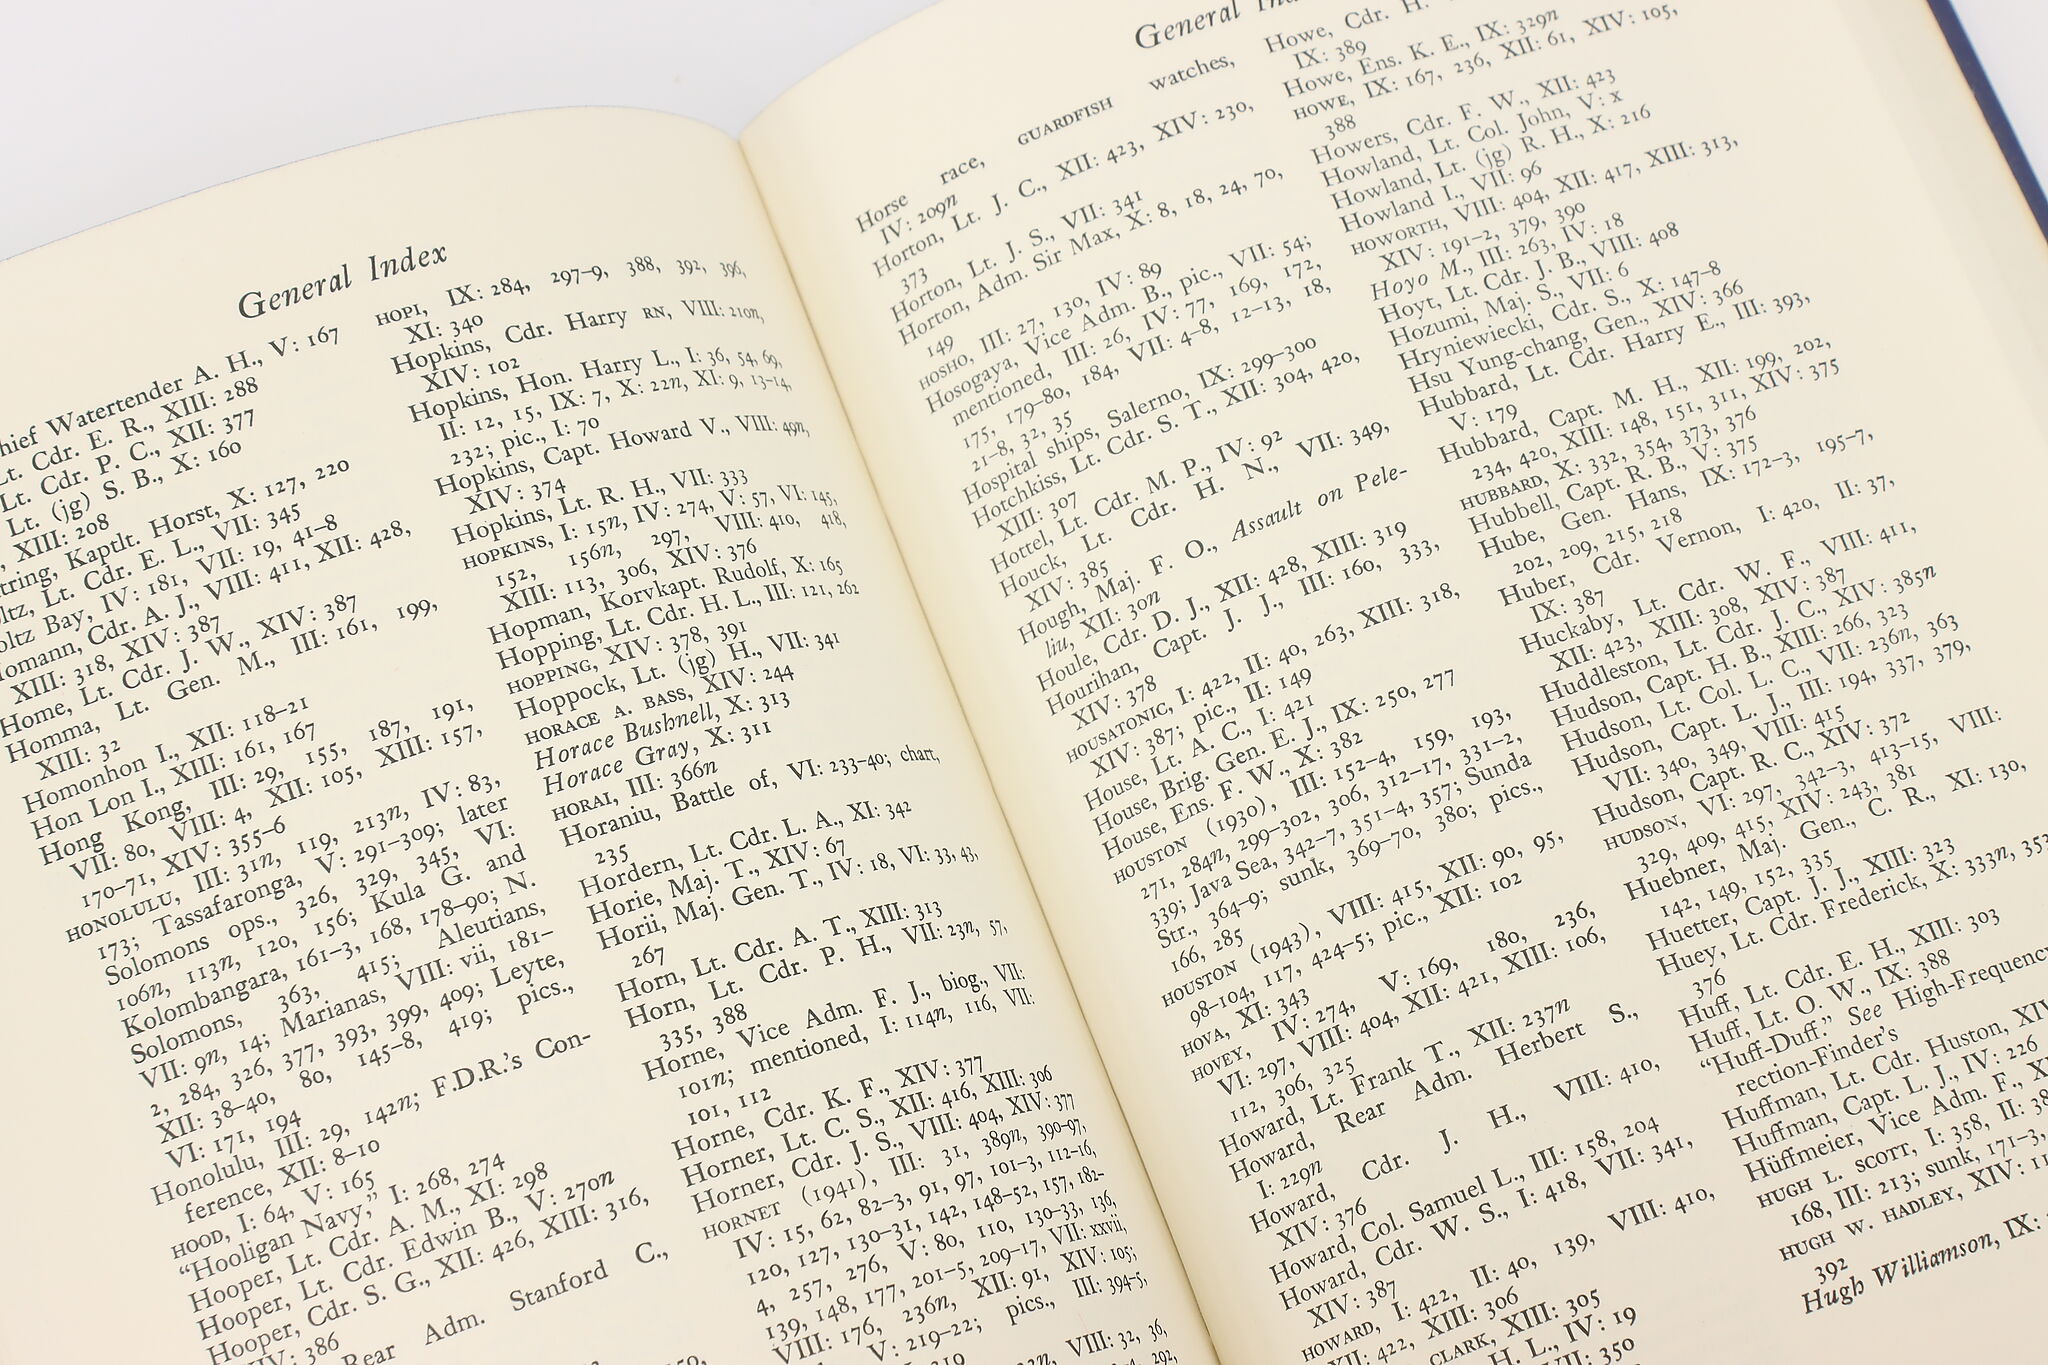 General Index
hief Watertender A. H., V: 167
Lt. Cdr. E. R., XIII: 288
Lt. Cdr. P. C., XII: 377
Lt. (jg) S. B., X: 160
XIII: 208
tring, Kaptlt. Horst, X: 127, 220
ltz, Lt. Cdr. E. L., VII: 345
oltz Bay, IV: 181, VII: 19, 41–8
Homann, Cdr. A. J., VIII: 411, XII: 428,
XIII: 318, XIV: 387
Home, Lt. Cdr. J. W., XIV: 387
Homma, Lt. Gen. M., III: 161, 199,
XIII: 32
Homonhon I., XII: 118–21
Hon Lon I., XIII: 161, 167
Hong Kong, III: 29, 155, 187, 191,
VII: 80, VIII: 4, XII: 105, XIII: 157,
170–71, XIV: 355–6
HONOLULU, III: 31n, 119, 213n, IV: 83,
173; Tassafaronga, V: 291–309; later
Solomons ops., 326, 329, 345, VI:
106n, 113n, 120, 156; Kula G. and
Kolombangara, 161–3, 168, 178–90; N.
Solomons, 363, 415; Aleutians,
VII: 9n, 14; Marianas, VIII: vii, 181–
2, 284, 326, 377, 393, 399, 409; Leyte,
XII: 38–40, 80, 145–8, 419; pics.,
VI: 171, 194
Honolulu, III: 29, 142n; F.D.R.'s Con-
ference, XII: 8–10
HOOD, I: 64, V: 165
"Hooligan Navy," I: 268, 274
Hooper, Lt. Cdr. A. M., XI: 298
Hooper, Lt. Cdr. Edwin B., V: 270n
Hooper, Cdr. S. G., XII: 426, XIII: 316,
XIV: 386
Rear Adm. Stanford C.,
HOPI, IX: 284, 297–9, 388, 392, 396,
XI: 340
Hopkins, Cdr. Harry RN, VIII: 210n,
XIV: 102
Hopkins, Hon. Harry L., I: 36, 54, 69,
II: 12, 15, IX: 7, X: 22n, XI: 9, 13–14,
232; pic., I: 70
Hopkins, Capt. Howard V., VIII: 49n,
XIV: 374
Hopkins, Lt. R. H., VII: 333
HOPKINS, I: 15n, IV: 274, V: 57, VI: 145,
152, 156n, 297, VIII: 410, 418,
XIII: 113, 306, XIV: 376
Hopman, Korvkapt. Rudolf, X: 165
Hopping, Lt. Cdr. H. L., III: 121, 262
HOPPING, XIV: 378, 391
Hoppock, Lt. (jg) H., VII: 341
HORACE A. BASS, XIV: 244
Horace Bushnell, X: 313
Horace Gray, X: 311
HORAI, III: 366n
Horaniu, Battle of, VI: 233–40; chart,
235
Hordern, Lt. Cdr. L. A., XI: 342
Horie, Maj. T., XIV: 67
Horii, Maj. Gen. T., IV: 18, VI: 33, 43,
267
Horn, Lt. Cdr. A. T., XIII: 313
Horn, Lt. Cdr. P. H., VII: 23n, 57,
335, 388
Horne, Vice Adm. F. J., biog., VII:
101n; mentioned, I: 114n, 116, VII:
101, 112
Horne, Cdr. K. F., XIV: 377
Horner, Lt. C. S., XII: 416, XIII: 306
Horner, Cdr. J. S., VIII: 404, XIV: 377
HORNET (1941), III: 31, 389n, 390–97,
IV: 15, 62, 82–3, 91, 97, 101–3, 112–16,
120, 127, 130–31, 142, 148–52, 157, 182–
4, 257, 276, V: 80, 110, 130–33, 136,
139, 148, 177, 201–5, 209–17, VII: xxvii,
VIII: 176, 236n, XII: 91, XIV: 105;
V: 219–22; pics., III: 394–5,
VIII: 32, 36,
General
Horse race, GUARDFISH watches,
IV: 209n
Horton, Lt. J. C., XII: 423, XIV: 230,
373
Horton, Lt. J. S., VII: 341
Horton, Adm. Sir Max, X: 8, 18, 24, 70,
149
HOSHO, III: 27, 130, IV: 89
Hosogaya, Vice Adm. B., pic., VII: 54;
mentioned, III: 26, IV: 77, 169, 172,
175, 179–80, 184, VII: 4–8, 12–13, 18,
21–8, 32, 35
Hospital ships, Salerno, IX: 299–300
Hotchkiss, Lt. Cdr. S. T., XII: 304, 420,
XIII: 307
Hottel, Lt. Cdr. M. P., IV: 92
Houck, Lt. Cdr. H. N., VII: 349,
XIV: 385
Hough, Maj. F. O., Assault on Pele-
liu, XII: 30n
Houle, Cdr. D. J., XII: 428, XIII: 319
Hourihan, Capt. J. J., III: 160, 333,
XIV: 378
HOUSATONIC, I: 422, II: 40, 263, XIII: 318,
XIV: 387; pic., II: 149
House, Lt. A. C., I: 421
House, Brig. Gen. E. J., IX: 250, 277
House, Ens. F. W., X: 382
HOUSTON (1930), III: 152–4, 159, 193,
271, 284n, 299–302, 306, 312–17, 331–2,
339; Java Sea, 342–7, 351–4, 357; Sunda
Str., 364–9; sunk, 369–70, 380; pics.,
166, 285
HOUSTON (1943), VIII: 415, XII: 90, 95,
98–104, 117, 424–5; pic., XII: 102
HOVA, XI: 343
HOVEY, IV: 274, V: 169, 180, 236,
VI: 297, VIII: 404, XII: 421, XIII: 106,
112, 306, 325
Howard, Lt. Frank T., XII: 237n
Howard, Rear Adm. Herbert S.,
I: 229n
Howard, Cdr. J. H., VIII: 410,
XIV: 376
Howard, Col. Samuel L., III: 158, 204
Howard, Cdr. W. S., I: 418, VII: 341,
XIV: 387
HOWARD, I: 422, II: 40, 139, VIII: 410,
XII: 422, XIII: 306
CLARK, XIII: 305
H. L., IV: 19
VII: 350
Howe, Cdr. H.
IX: 389
Howe, Ens. K. E., IX: 329n
HOWE, IX: 167, 236, XII: 61, XIV: 105,
388
Howers, Cdr. F. W., XII: 423
Howland, Lt. Col. John, V: x
Howland, Lt. (jg) R. H., X: 216
Howland I., VII: 96
HOWORTH, VIII: 404, XII: 417, XIII: 313,
XIV: 191–2, 379, 390
Hoyo M., III: 263, IV: 18
Hoyt, Lt. Cdr. J. B., VIII: 408
Hozumi, Maj. S., VII: 6
Hryniewiecki, Cdr. S., X: 147–8
Hsu Yung-chang, Gen., XIV: 366
Hubbard, Lt. Cdr. Harry E., III: 393,
V: 179
Hubbard, Capt. M. H., XII: 199, 202,
234, 420, XIII: 148, 151, 311, XIV: 375
HUBBARD, X: 332, 354, 373, 376
Hubbell, Capt. R. B., V: 375
Hube, Gen. Hans, IX: 172–3, 195–7,
202, 209, 215, 218
Huber, Cdr. Vernon, I: 420, II: 37,
IX: 387
Huckaby, Lt. Cdr. W. F., VIII: 411,
XII: 423, XIII: 308, XIV: 387
Huddleston, Lt. Cdr. J. C., XIV: 385n
Hudson, Capt. H. B., XIII: 266, 323
Hudson, Lt. Col. L. C., VII: 236n, 363
Hudson, Capt. L. J., III: 194, 337, 379,
VII: 340, 349, VIII: 415
Hudson, Capt. R. C., XIV: 372
HUDSON, VI: 297, 342–3, 413–15, VIII:
329, 409, 415, XIV: 243, 381
Huebner, Maj. Gen., C. R., XI: 130,
142, 149, 152, 335
Huetter, Capt. J. J., XIII: 323
Huey, Lt. Cdr. Frederick, X: 333n, 353
376
Huff, Lt. Cdr. E. H., XIII: 303
Huff, Lt. O. W., IX: 388
"Huff-Duff." See High-Frequency
rection-Finder's
Huffman, Lt. Cdr. Huston, XIV
Huffman, Capt. L. J., IV: 226
Hüffmeier, Vice Adm. F., X
HUGH L. SCOTT, I: 358, II: 38
168, III: 213; sunk, 171–3,
HUGH W. HADLEY, XIV: 11
392
Hugh Williamson, IX: